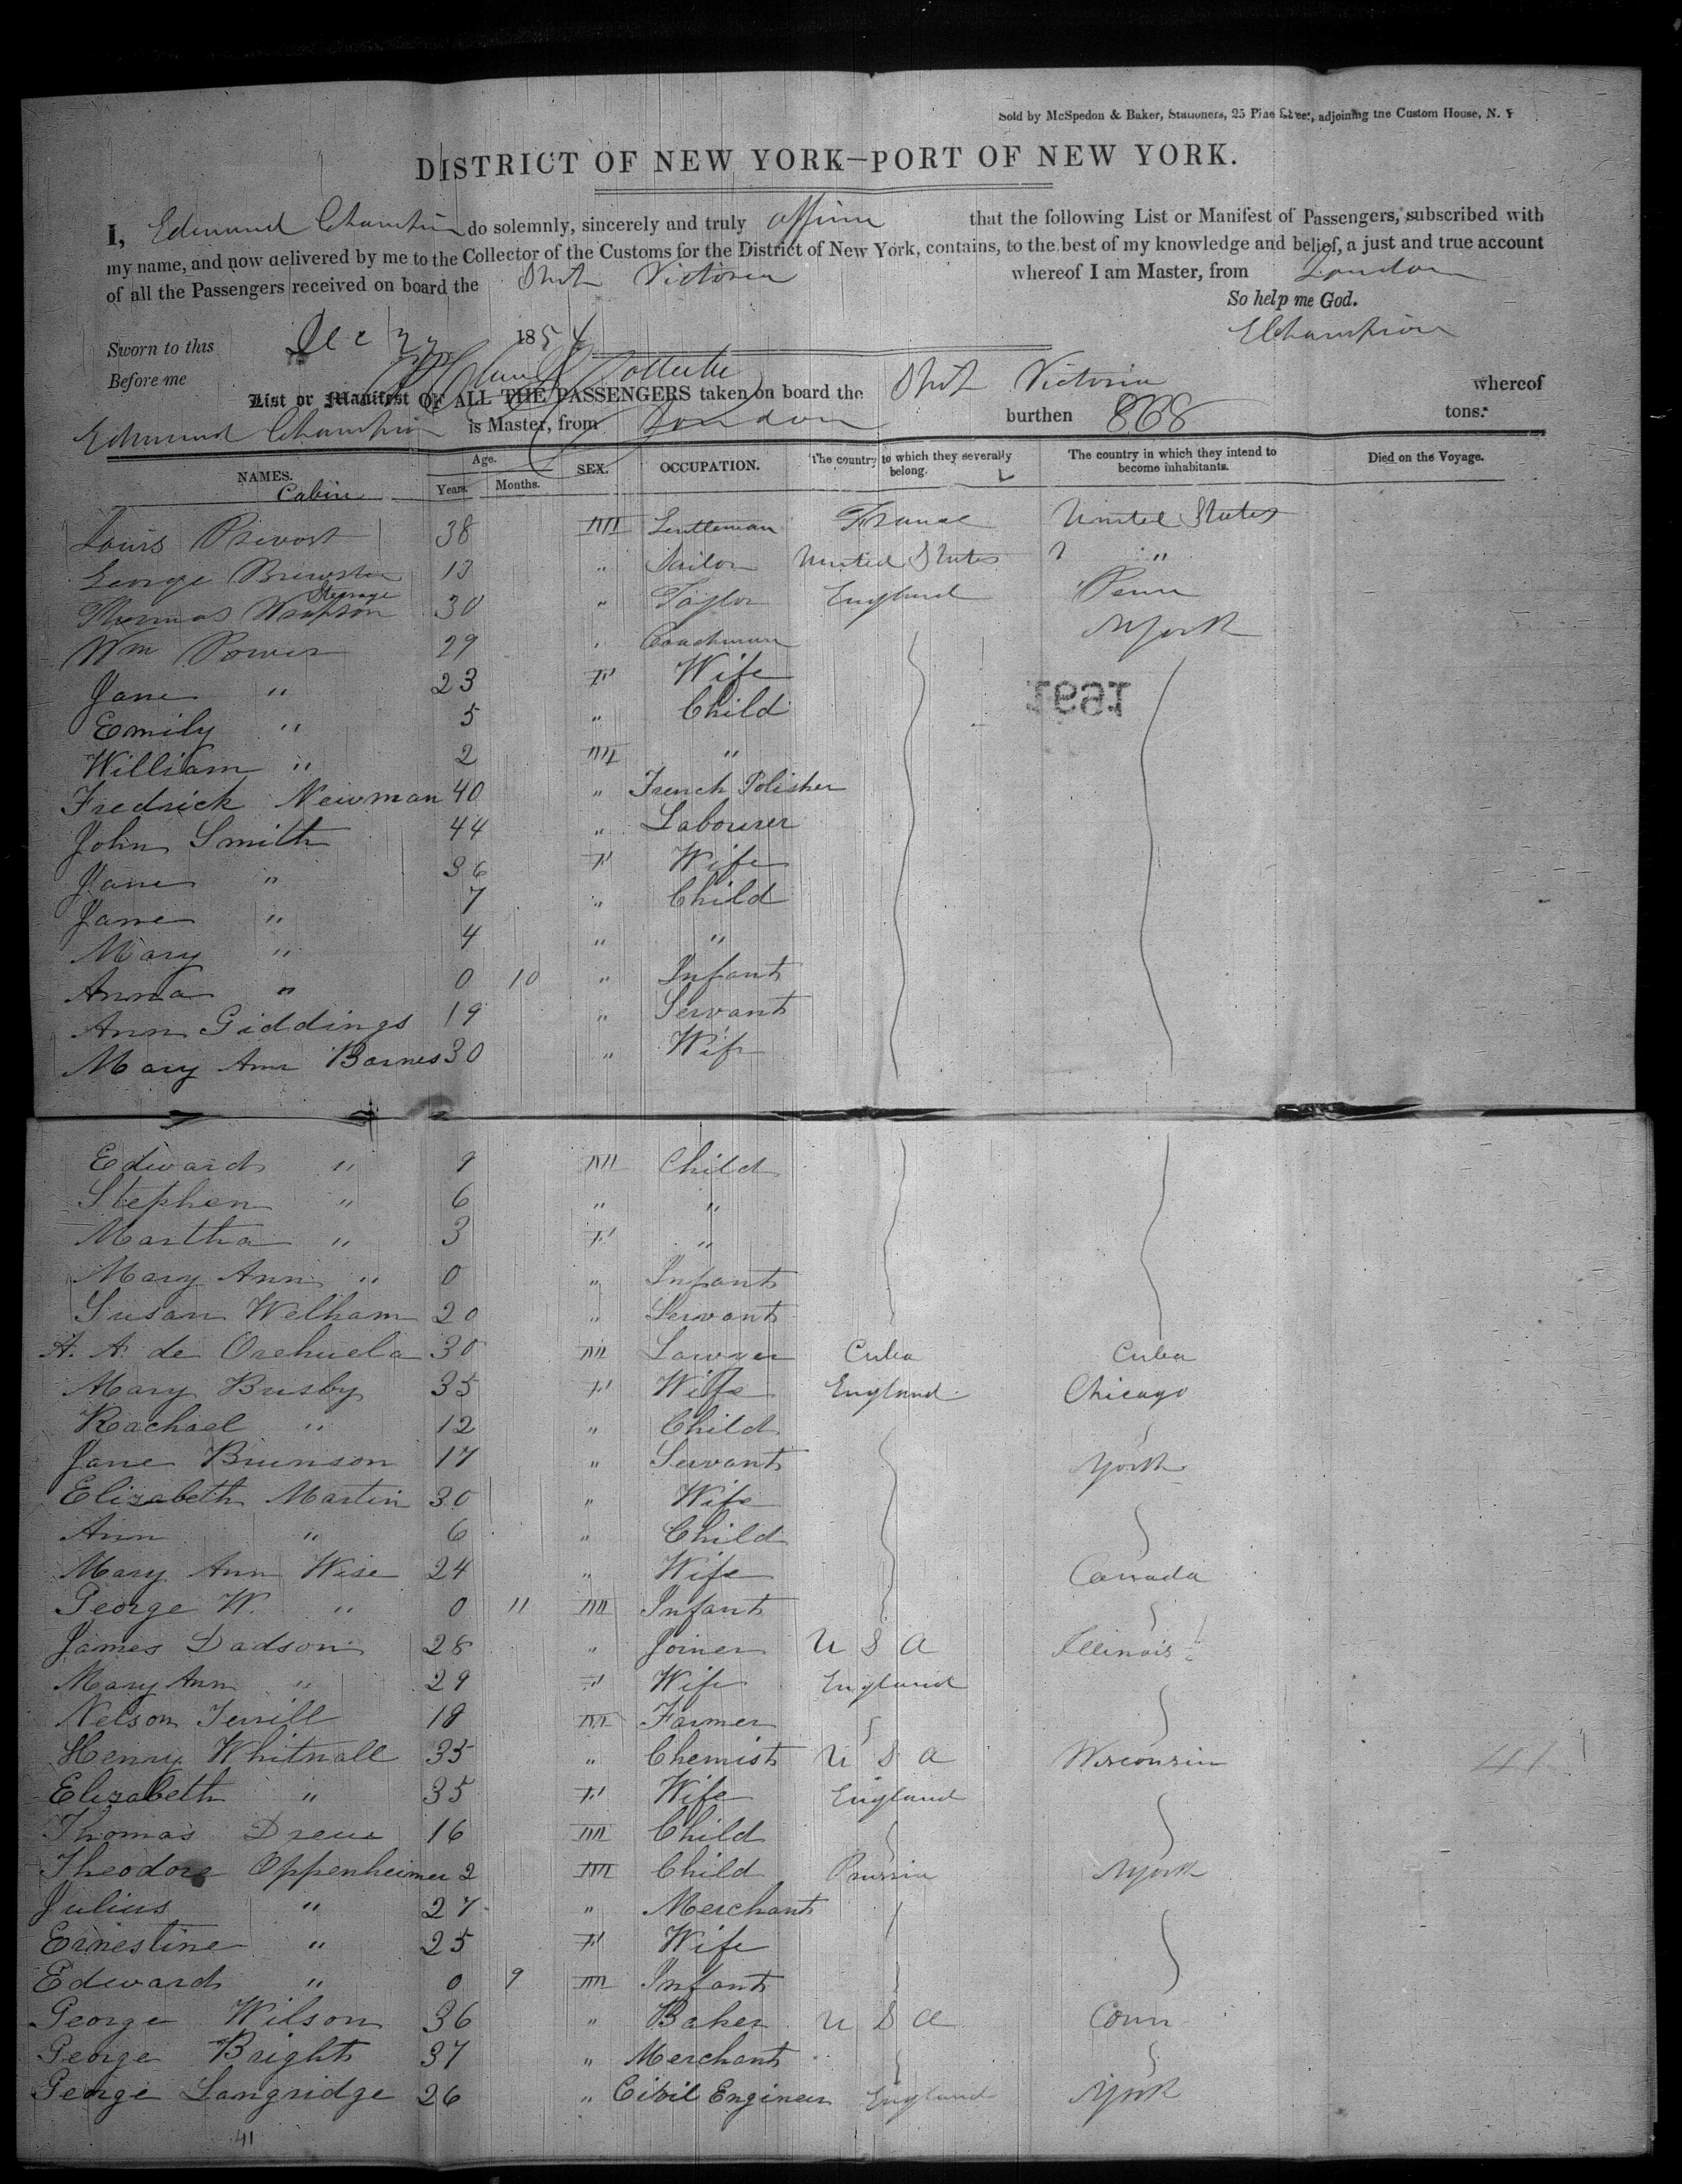 Sold by McSpedon & Baker, Stationers, 25 Pine Street, adjoining the Custom House, N. Y
DISTRICT OF NEW YORK—PORT OF NEW YORK.
I, Edmund Champion do solemnly, sincerely and truly affirm that the following List or Manifest of Passengers, subscribed with
my name, and now delivered by me to the Collector of the Customs for the District of New York, contains, to the best of my knowledge and belief, a just and true account
of all the Passengers received on board the Ship Victoria whereof I am Master, from London
So help me God.
Sworn to this Dec 1854 EChampion
Before me
List or Manifest OF ALL THE PASSENGERS taken on board the Ship Victoria whereof
Edmund Champion is Master, from London burthen 868 tons.
NAMES. Age. Years. Months. SEX. OCCUPATION. The country to which they severally belong. The country in which they intend to become inhabitants. Died on the Voyage.
Cabin
Louis Prevost 38 M Gentleman France United States
George Brewster 13 " Sailor United States "
Steerage
Thomas 30 " Taylor England Penn
Wm Power 29 " Coachman NYork
Jane " 23 F Wife
Emily " 5 " Child
William " 2 M "
Fredrick Newman 40 " French Polisher
John Smith 44 " Labourer
Jane " 36 F Wife
Jane " 7 " Child
Mary " 4 " "
Anna " 0 10 " Infant
Ann Giddings 19 " Servant
Mary Ann Barnes 30 " Wife
Edward " 9 M Child
Stephen " 6 " "
Martha " 3 F "
Mary Ann " 0 " Infant
Susan Welham 20 " Servant
A. A. de Orehuela 30 M Lawyer Cuba Cuba
Mary Busby 35 F Wife England Chicago
Rachael " 12 " Child
Jane Brunson 17 " Servant York
Elizabeth Martin 30 " Wife
Ann " 6 " Child
Mary Ann Wise 24 " Wife Canada
George W. " 0 11 M Infant
James Dadson 28 " Joiner U S A Illinois
Mary Ann " 29 F Wife England
Nelson Terrill 18 M Farmer
Henry Whitnall 35 " Chemist U S A Wisconsin 41
Elizabeth " 35 F Wife England
Thomas Drew 16 M Child
Theodore Oppenheimer 2 M Child Prussia NYork
Julius " 27 " Merchant
Ernestine " 25 F Wife
Edward " 0 9 M Infant
George Wilson 36 " Baker U S A Conn
George Bright 37 " Merchant
George Langridge 26 " Civil Engineer England NYork
41